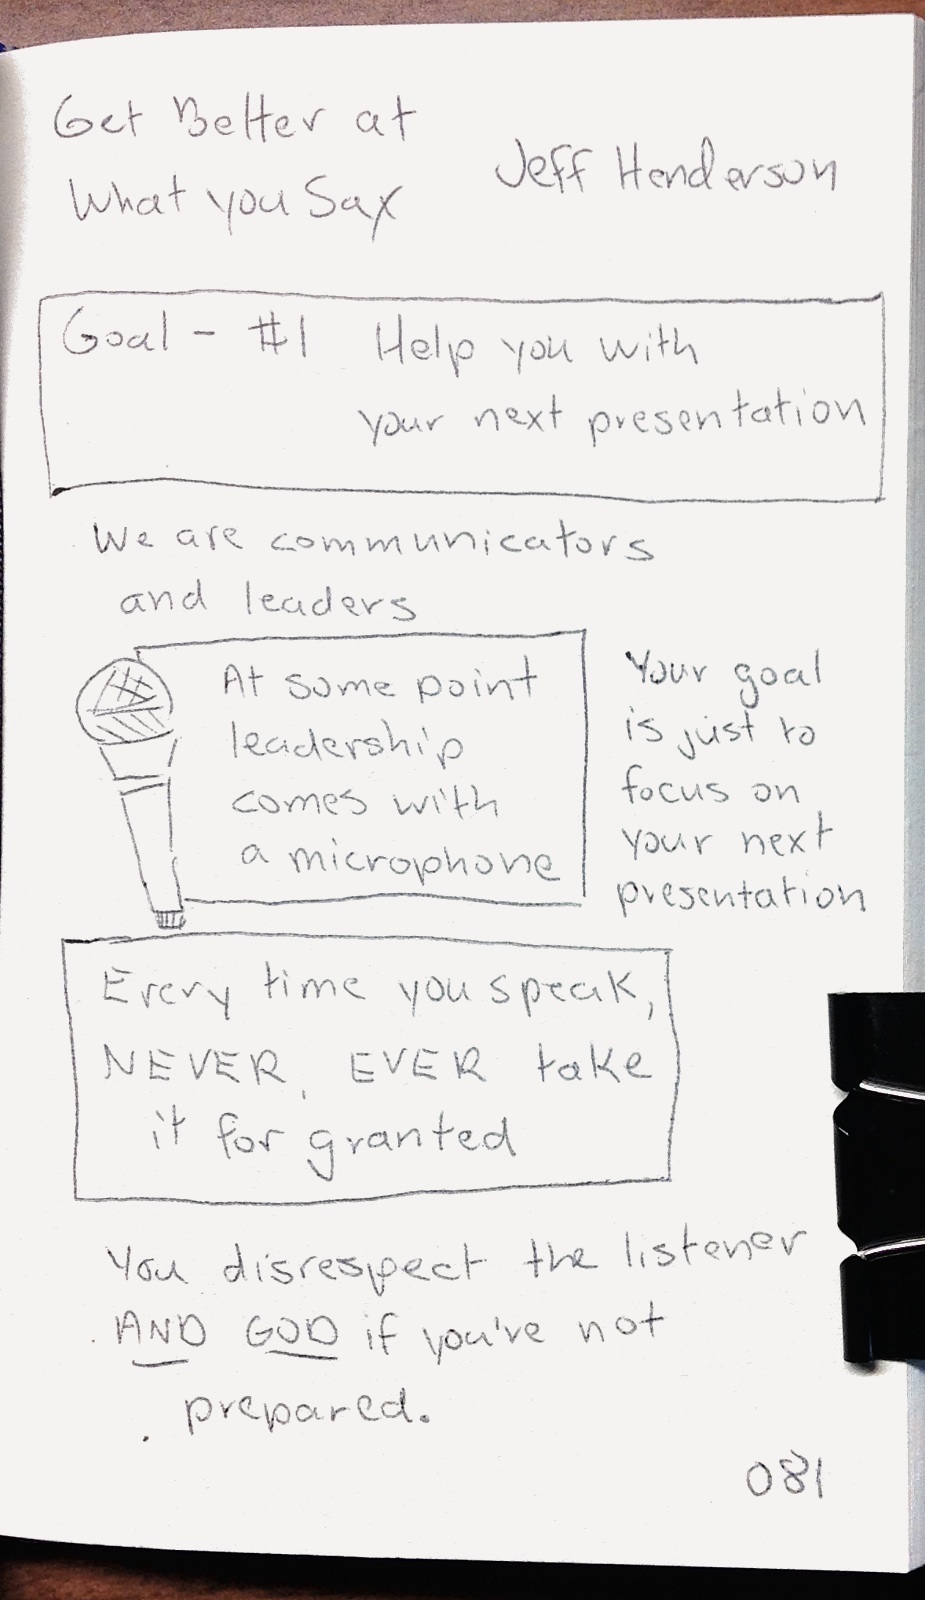 Get Better at
What you Say
Jeff Henderson
Goal - #1 Help you with
your next presentation
We are communicators
and leaders
At some point
leadership
comes with
a microphone
Your goal
is just to
focus on
your next
presentation
Every time you speak,
NEVER, EVER take
it for granted
You disrespect the listener
AND GOD if you've not
prepared.
081